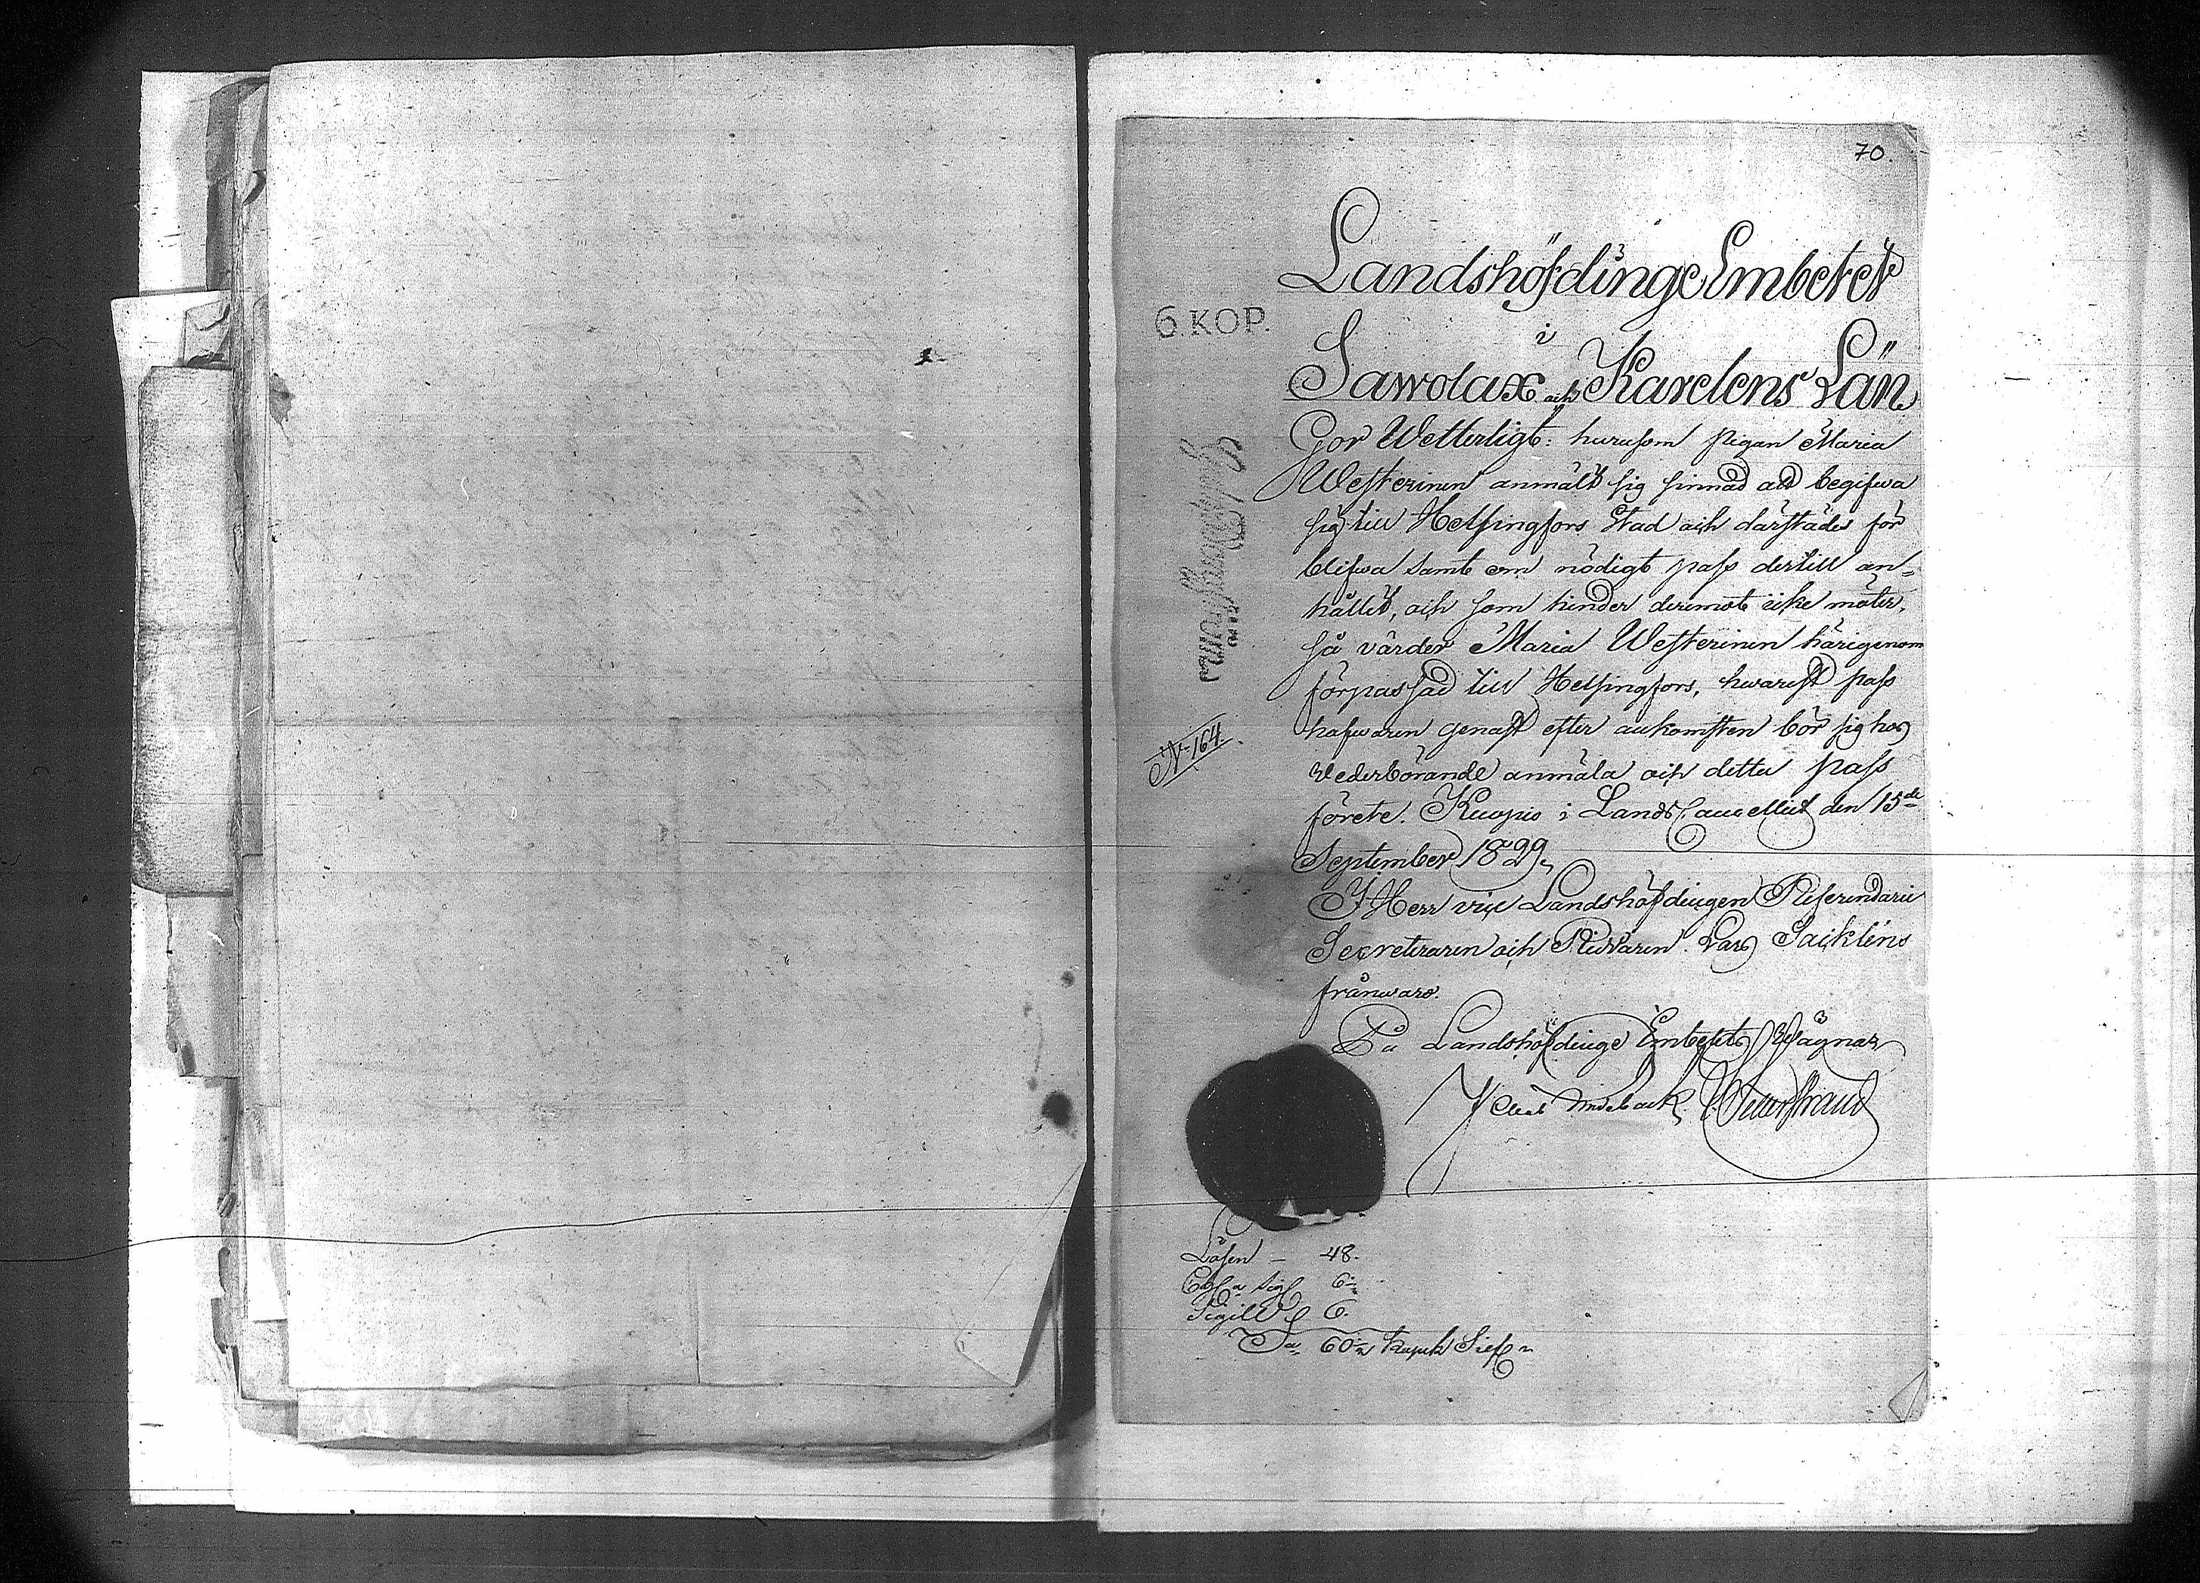 70.
Landshöfdinge Embetet
i
6 KOP.
Sawolax och Karelens Län
Gör Wetterligt: hurusom pigan Maria
Westerinen anmält sig sinnad att begifwa
sig till Helsingfors Stad och därstädes för
blifwa samt om nödigt pass dertill an=
hållit, och som hinder deremot icke möter,
så värder Maria Westerinen härigenom
förpassad till Helsingfors, hwarest pass
hafwaren genast efter ankomsten bör sig hos
Vederbörande anmäla och detta pass
förete. Kuopio i Lands Cancelliet den 15de
N 164.
September 1829.
I Herr vice Landshöfdingen Referendarie
Secreteraren och Riddaren Lars Sackléns
frånwaro.
På Landshöfdinge Embetets Wägnar
Lösen — 48.
Sigill 6.
Sa 60 kopek Silf